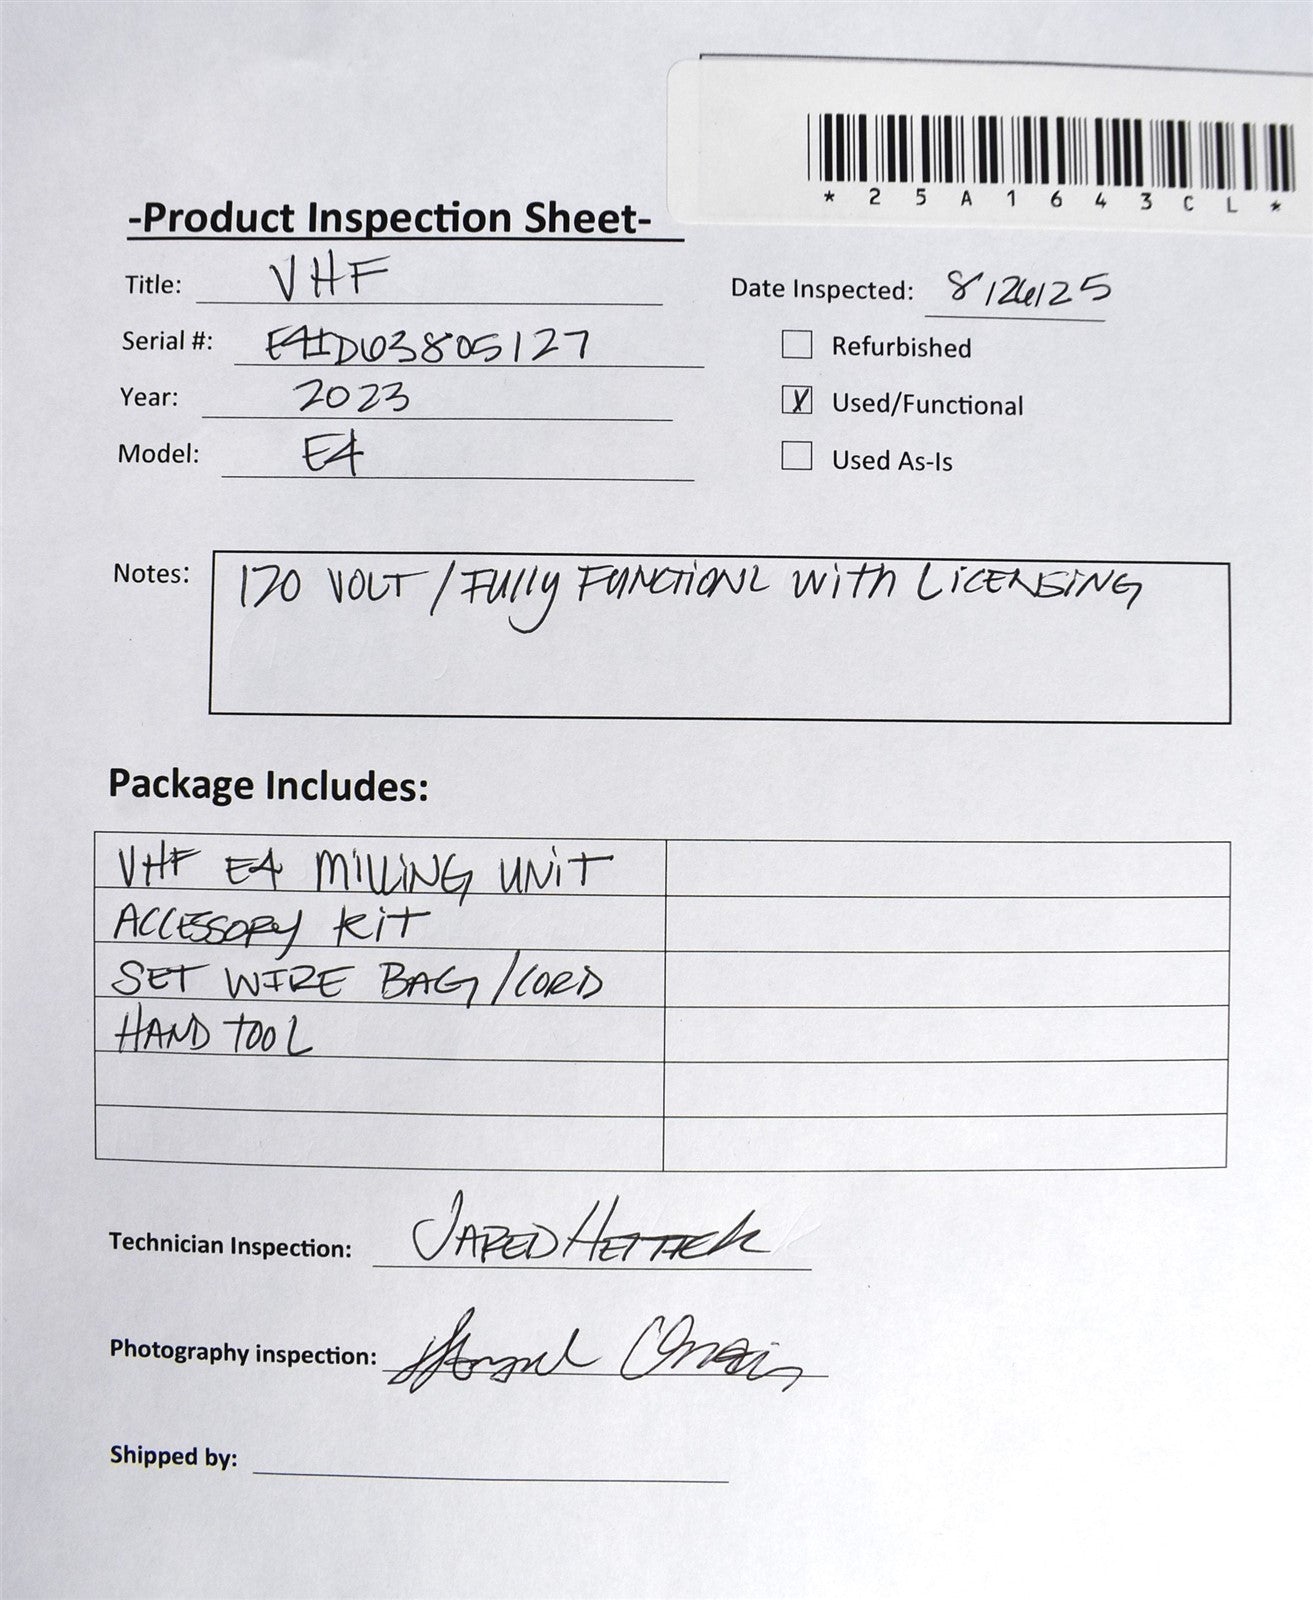 *25A1643CL*
-Product Inspection Sheet-
Title: VHF
Date Inspected: 8/26/25
Serial #: E4ID63805127
Refurbished
Year: 2023
X Used/Functional
Model: E4
Used As-Is
Notes: 120 VOLT / FUlly FUNCTIONL with LiCENSING
Package Includes:
VHF E4 MilliNG UNiT
ACCESSORY KiT
SET WIRE BAG/CORD
HAND TOOL
Technician Inspection: JARED
Photography inspection:
Shipped by: